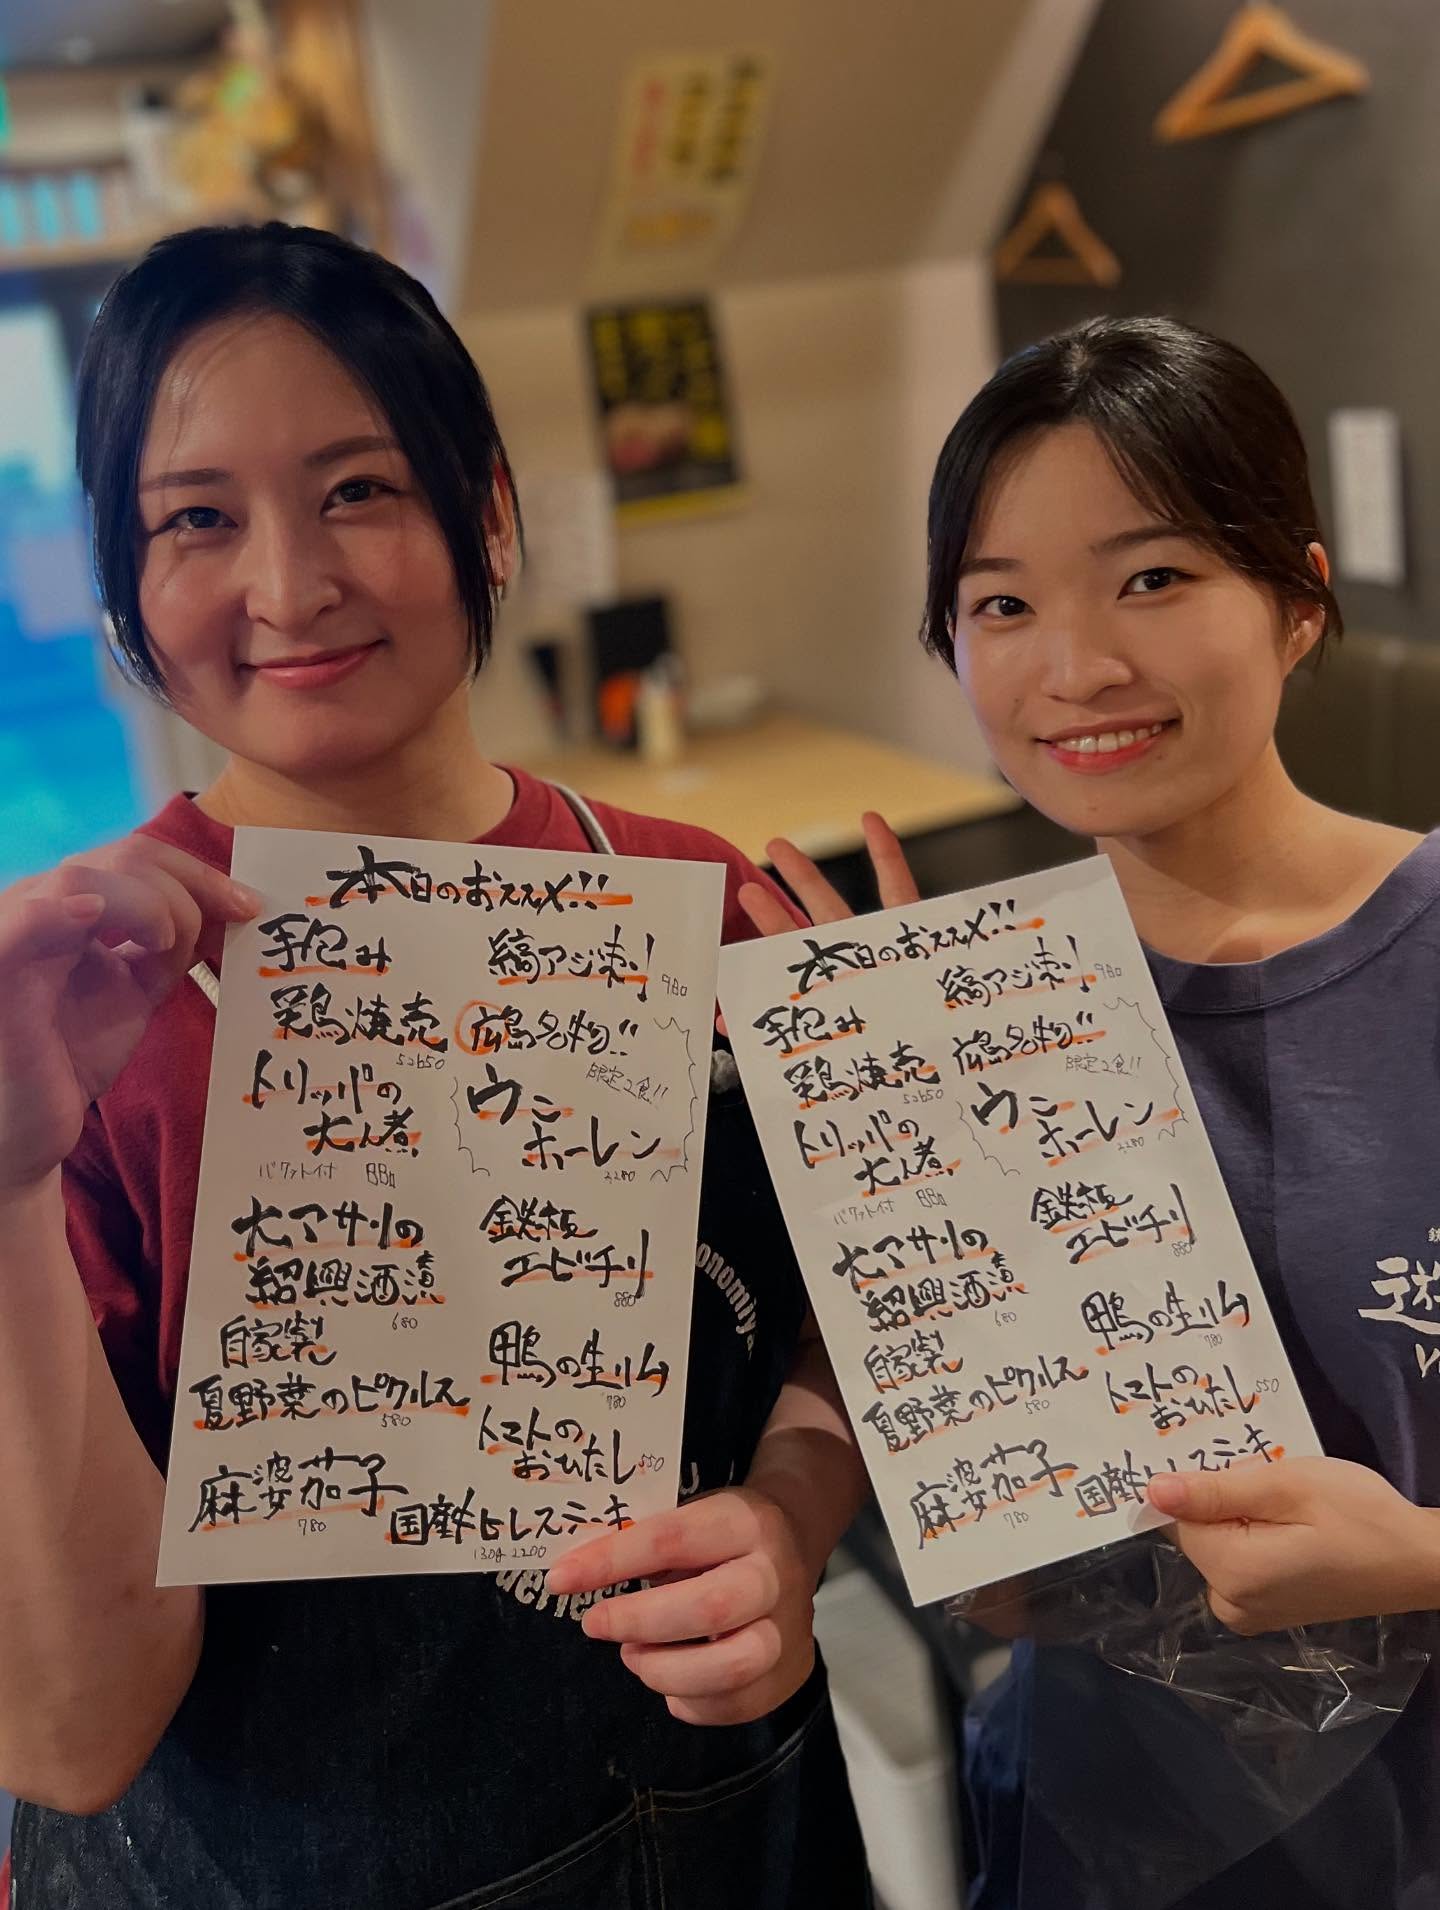 本日のおススメ!!
手包み
鶏焼売
5コ650
トリッパの
土人煮
バケット付 880
大アサリの
紹興酒漬
680
自家製
夏野菜のピクルス
580
麻婆茄子
780
縞アジ造り
980
広島名物!!
限定2食!!
ウニ
ホーレン
2280
鉄板
エビチリ
880
鴨の生ハム
780
トマトの
おひたし 550
国産牛ヒレステーキ
130g 2200
本日のおススメ!!
手包み
鶏焼売
5コ650
トリッパの
バケット付 880
大アサリの
紹興酒漬
680
自家製
夏野菜のピクルス
580
麻婆茄子
780
縞アジ造り
980
広島名物!!
限定2食!!
ウニ
ホーレン
2280
鉄板
エビチリ
880
鴨の生ハム
780
トマトの
おひたし 550
国産牛ヒレステーキ
onomiya